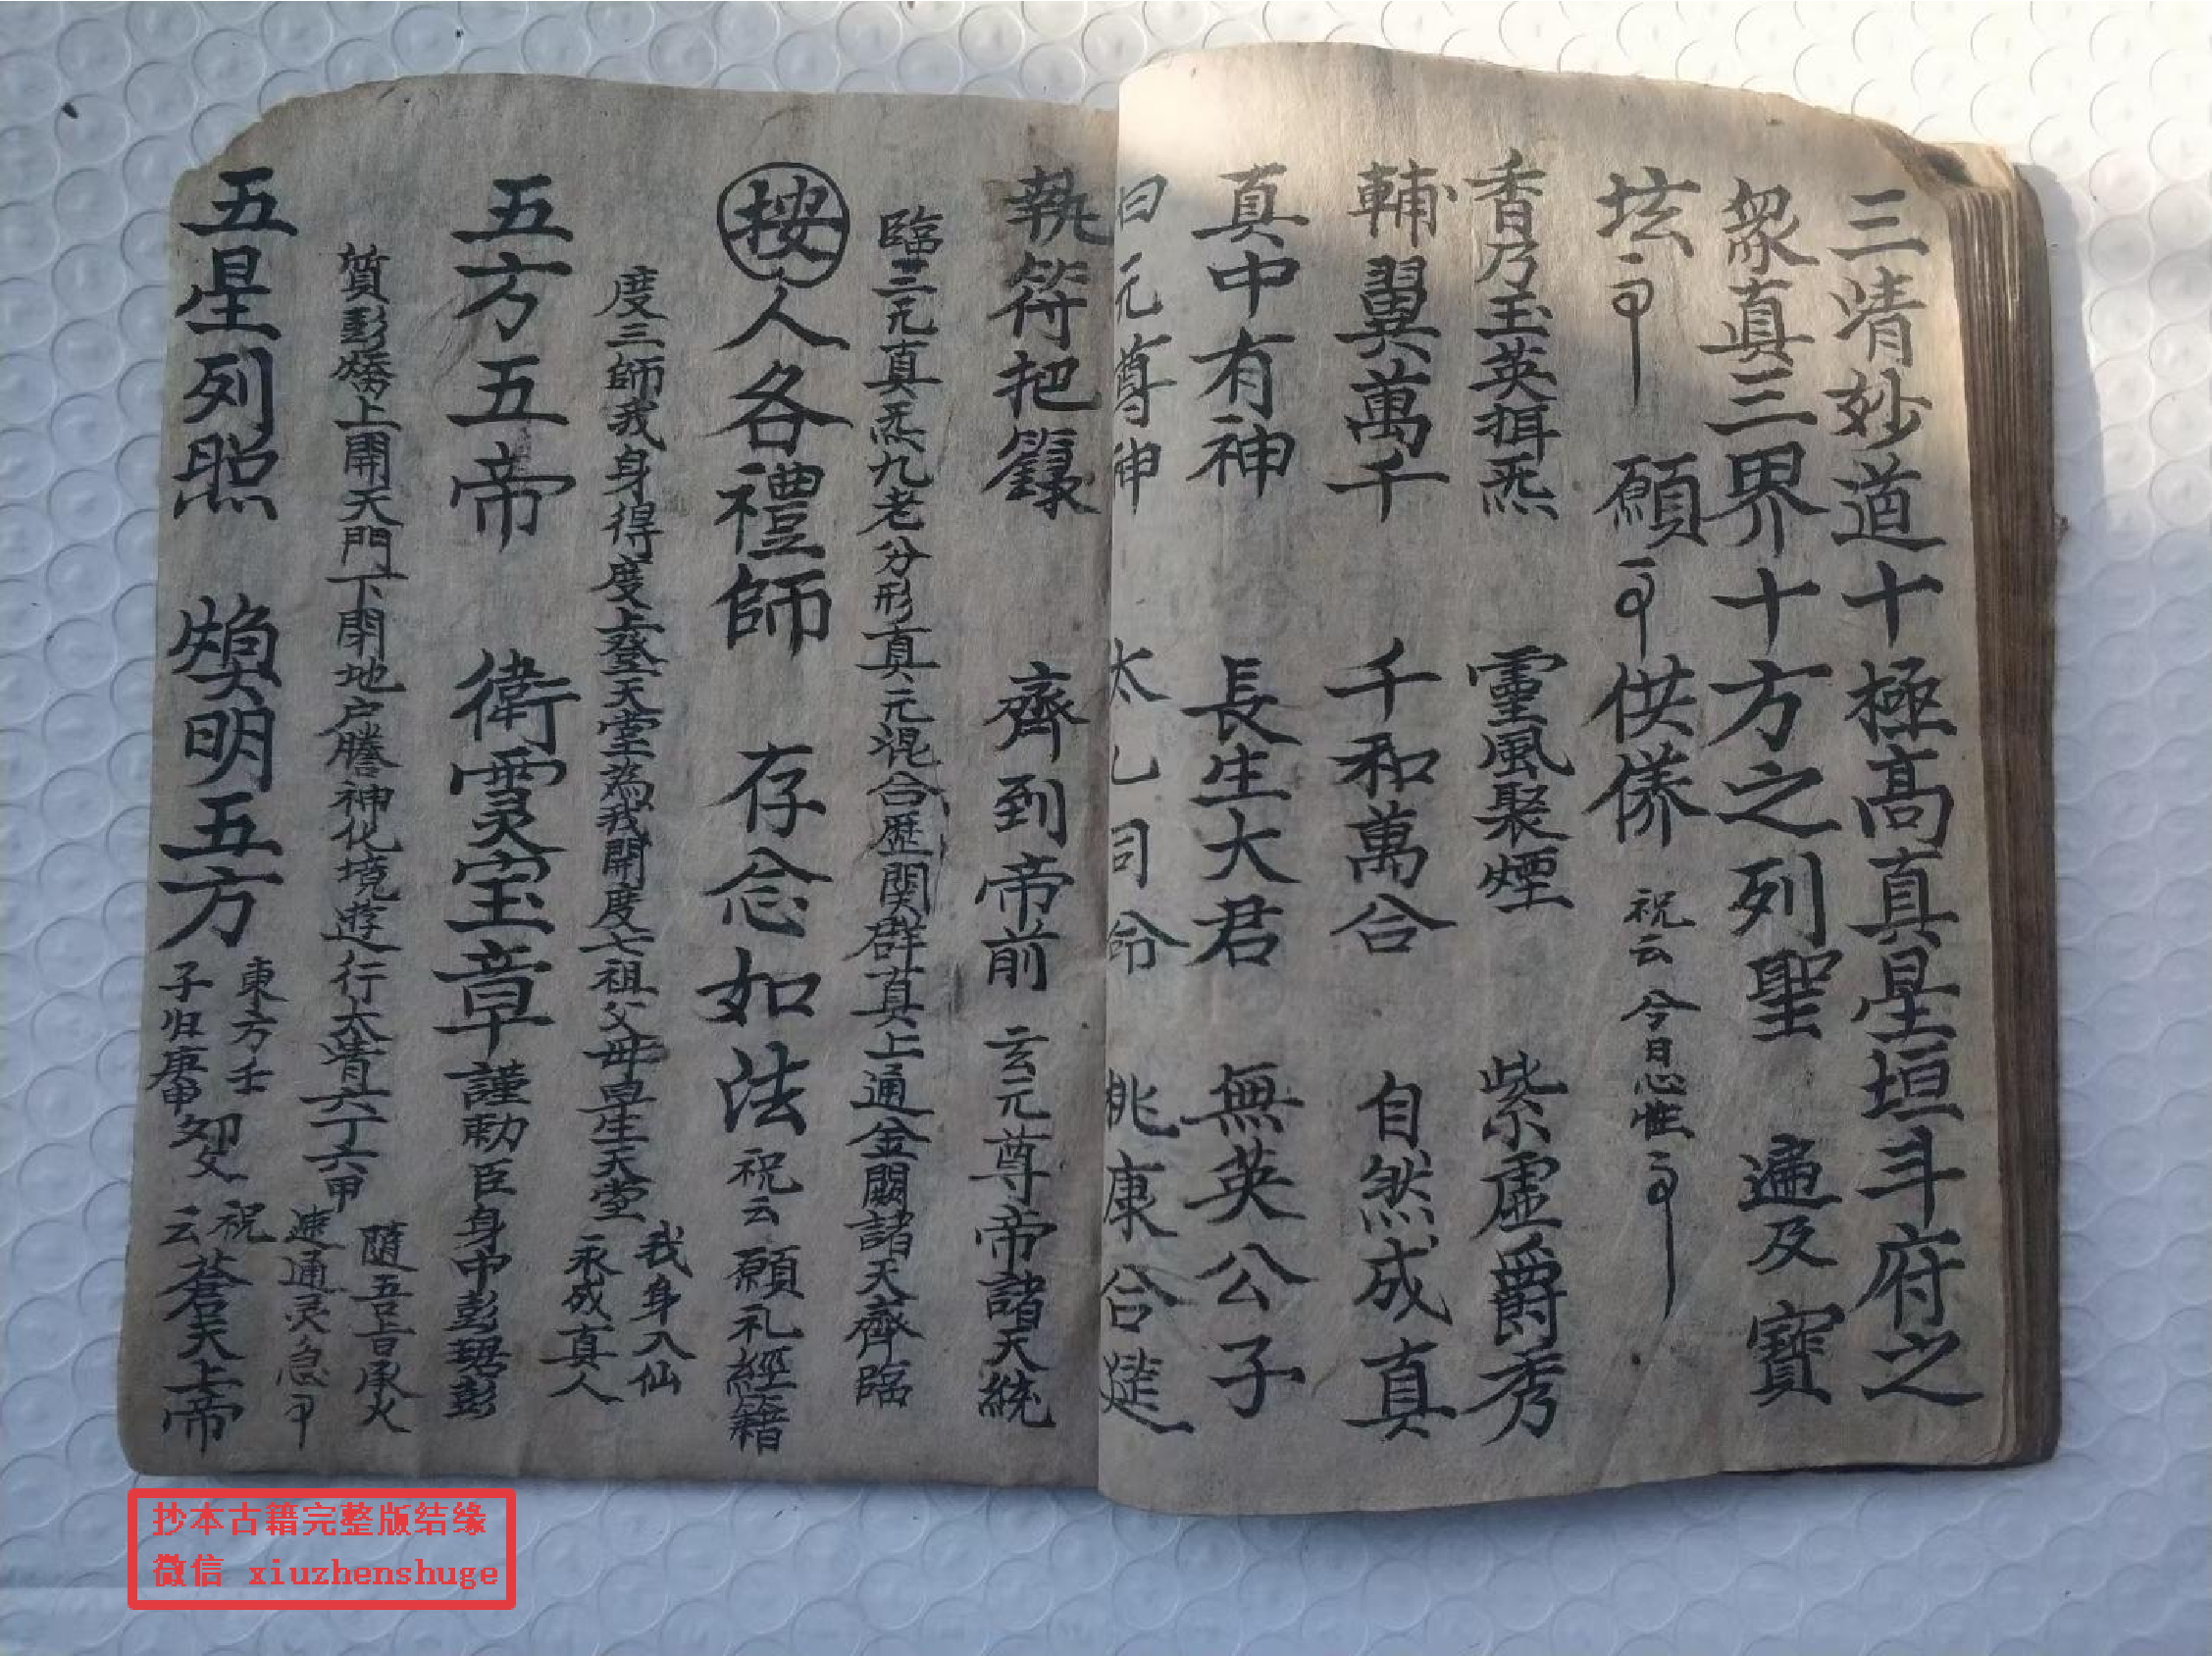 三清妙道十極高真星垣斗府之
衆真三界十方之列聖 遍及寶
坛 願 供養 祝云 今日心性
香乃玉英揖炁 靈風聚煙 紫虛爵秀
輔翼萬千 千和萬合 自然成真
真中有神 長生大君 無英公子
白元尊神 太乙司命 桃康合延
執符把籙 齊到帝前 玄元尊帝諸天統
臨三元真炁九老分形真元混合歷関群真上通金闕諸天齊臨
按人各禮師 存念如法 祝云 願礼經籍
度三師我身得度上登天堂為我開度七祖父母早生天堂 我身入仙
永成真人
五方五帝 衛灵宝章 謹勅臣身中彭琚彭
質彭矯上開天門下閉地户騰神化境遊行太清六丁六甲 隨吾上承火
速通灵急
五星列照 煥明五方 東方壬
子归庚申 祝
云 蒼天上帝
抄本古籍完整版结缘
微信 xiuzhenshuge